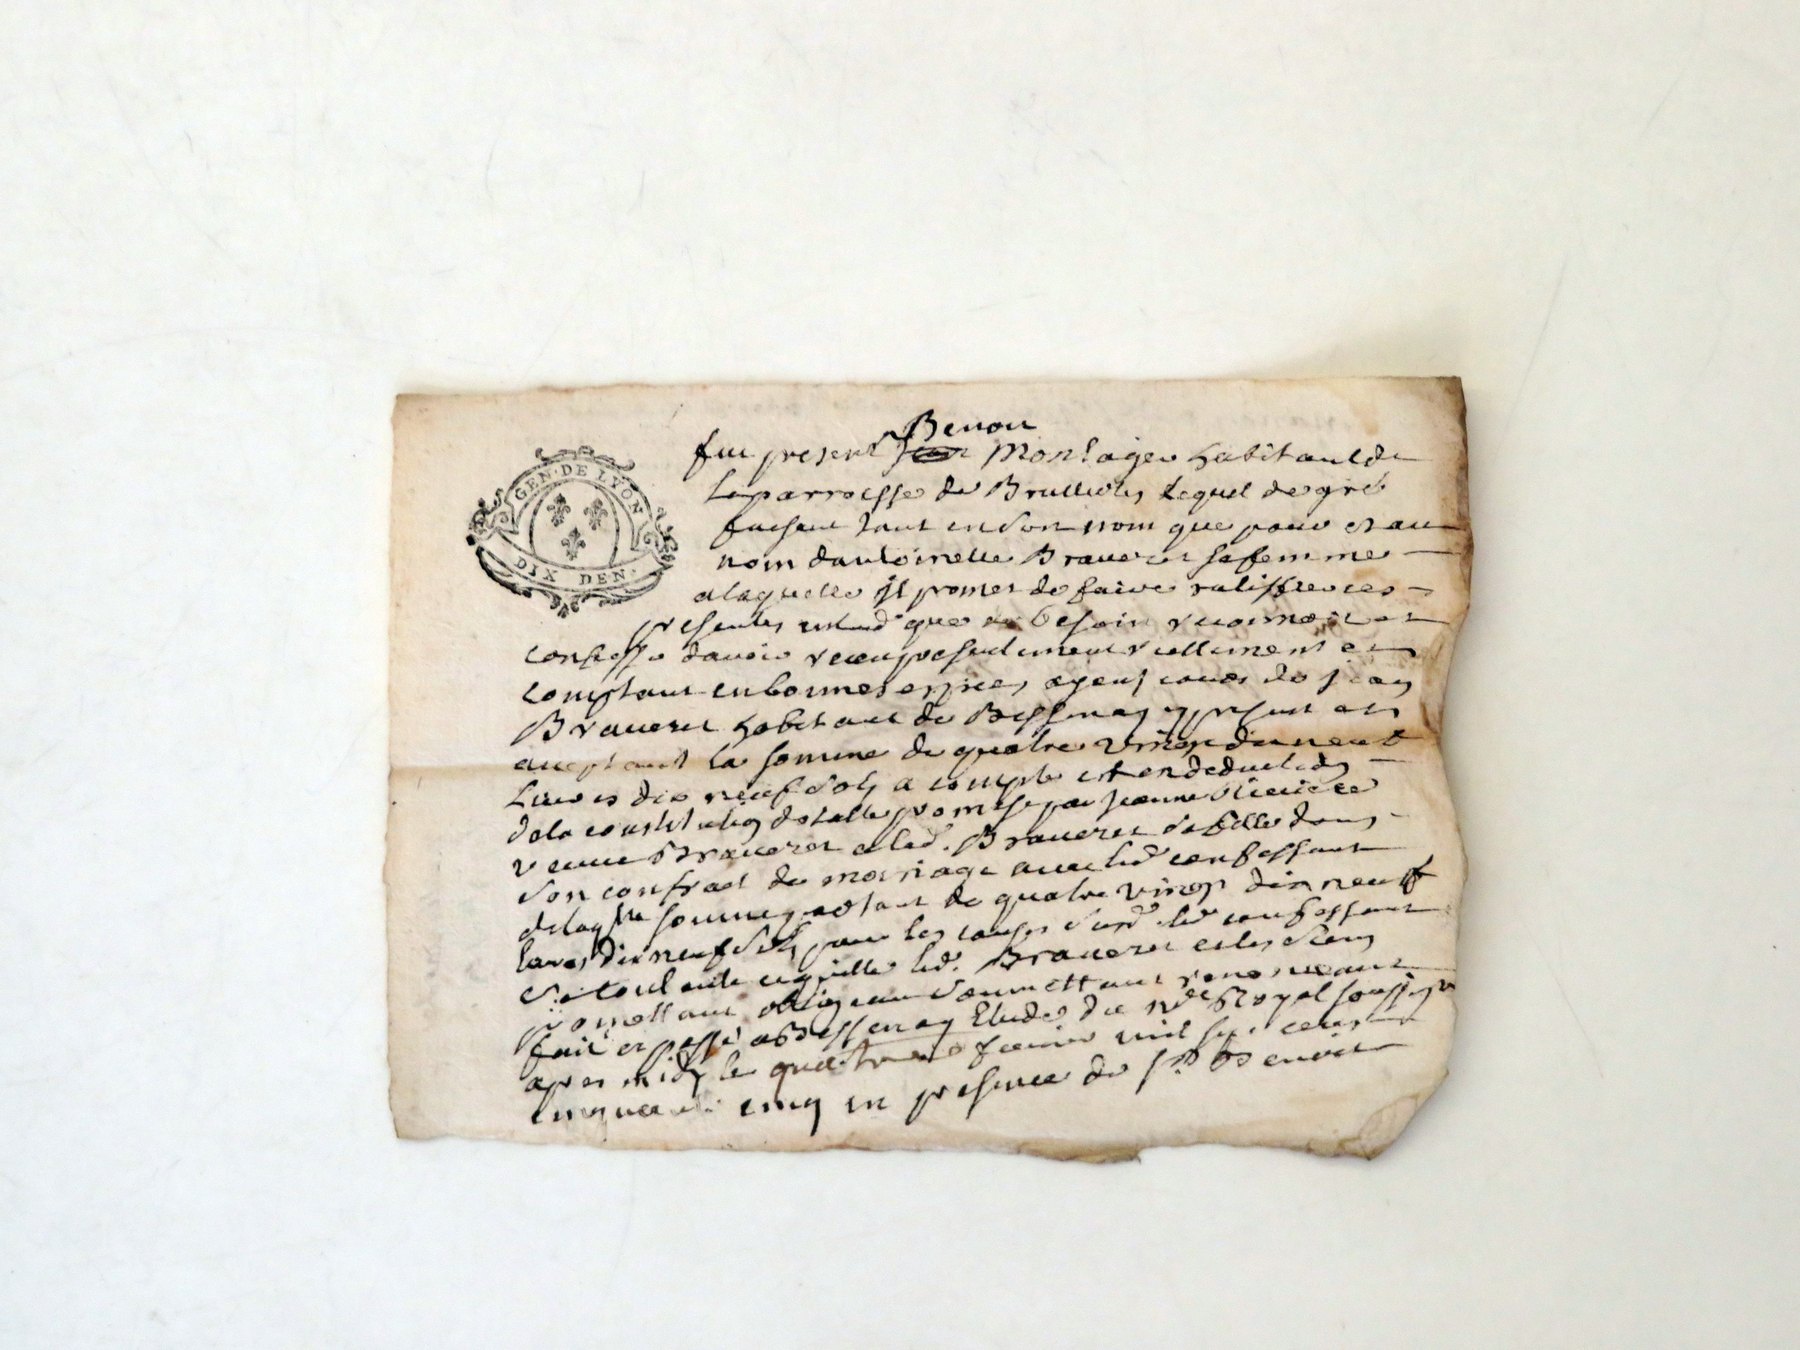 GEN · DE LYON
DIX DEN ·
Benoit
fut present Montager habitant de
la parroisse de Brullioles lequel de gré
faisant tant en son nom que pour et au
nom dantoinette Braveret sa femme
a laquelle il promet de faire ratiffier ces
presentes en tant que de besoin reconnoit et
confesse davoir receu presentement reellement et
comptant en bonnes especes ayant cours de jean
Braveret habitant de Bessenay present et
acceptant la somme de quatre vingt dix neuf
livres dix neuf sols a compte et en deduction
de la constitution dotalle promise par jeanne
veuve Braveret a lad. Braveret sa fille dans
son contract de mariage avec led confessant
de laqlle somme de quatre vingt dix neuf
livres dix neuf sols pour les causes susd led confessant
se contente et quitte led. Braveret et les siens
promettant obligeant soumettant renonceant
fait et passé a Bessenay Etude du Nre Royal soussigne
apres midy le quatre fevrier mil sept cent
cinquante cinq en presence de sr Benoit